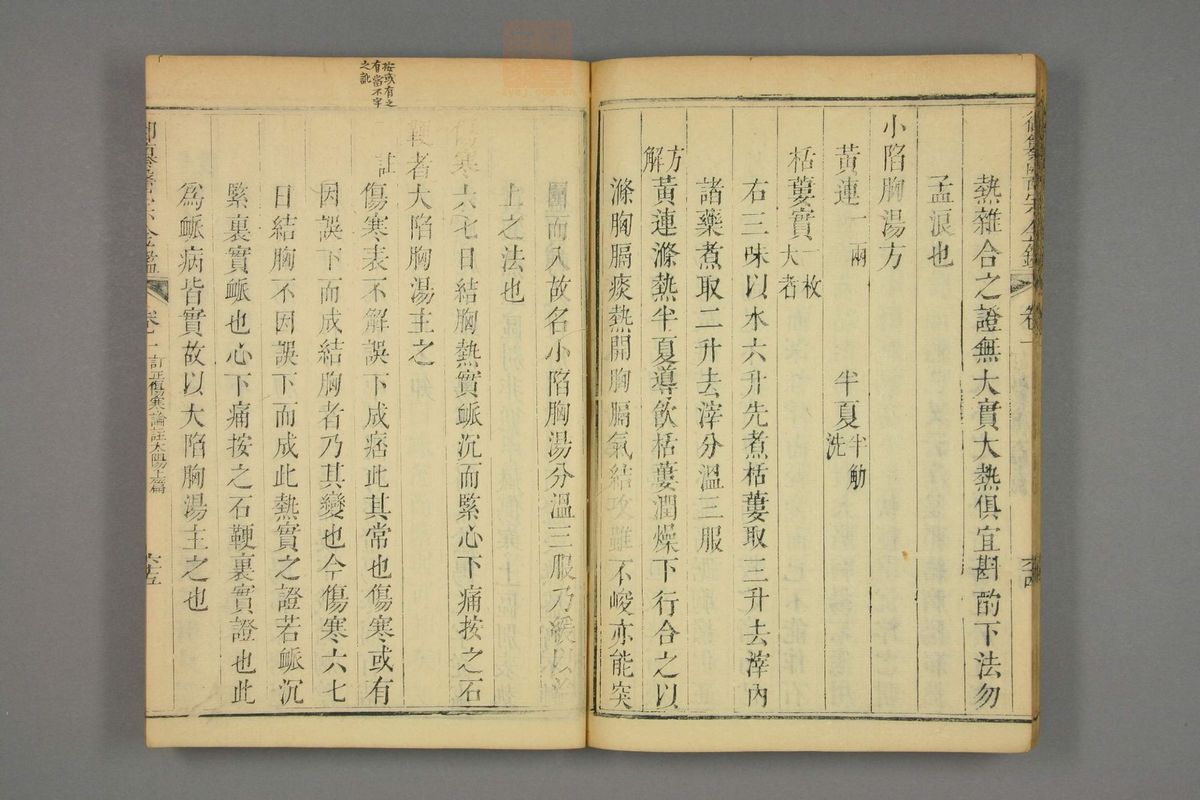 熱雜合之證無大實大熱俱宜斟酌下法勿
孟浪也
小陷胸湯方
黃連一兩　半夏半觔洗
栝蔞實一枚大者
右三味以水六升先煮栝蔞取三升去滓內
諸藥煮取二升去滓分溫三服
方解
黃連滌熱半夏導飲栝蔞潤燥下行合之以
滌胸膈痰熱開胸膈氣結攻雖不峻亦能突
圍而入故名小陷胸湯分溫三服乃緩以
上之法也
傷寒六七日結胸熱實脈沉而緊心下痛按之石
鞕者大陷胸湯主之
按或有之
有當不字
之訛
註
傷寒表不解誤下成痞此其常也傷寒或有
因誤下而成結胸者乃其變也今傷寒六七
日結胸不因誤下而成此熱實之證若脈沉
緊裏實脈也心下痛按之石鞕裏實證也此
爲脈病皆實故以大陷胸湯主之也
御纂醫宗金鑑　卷一　訂正傷寒論註太陽上篇